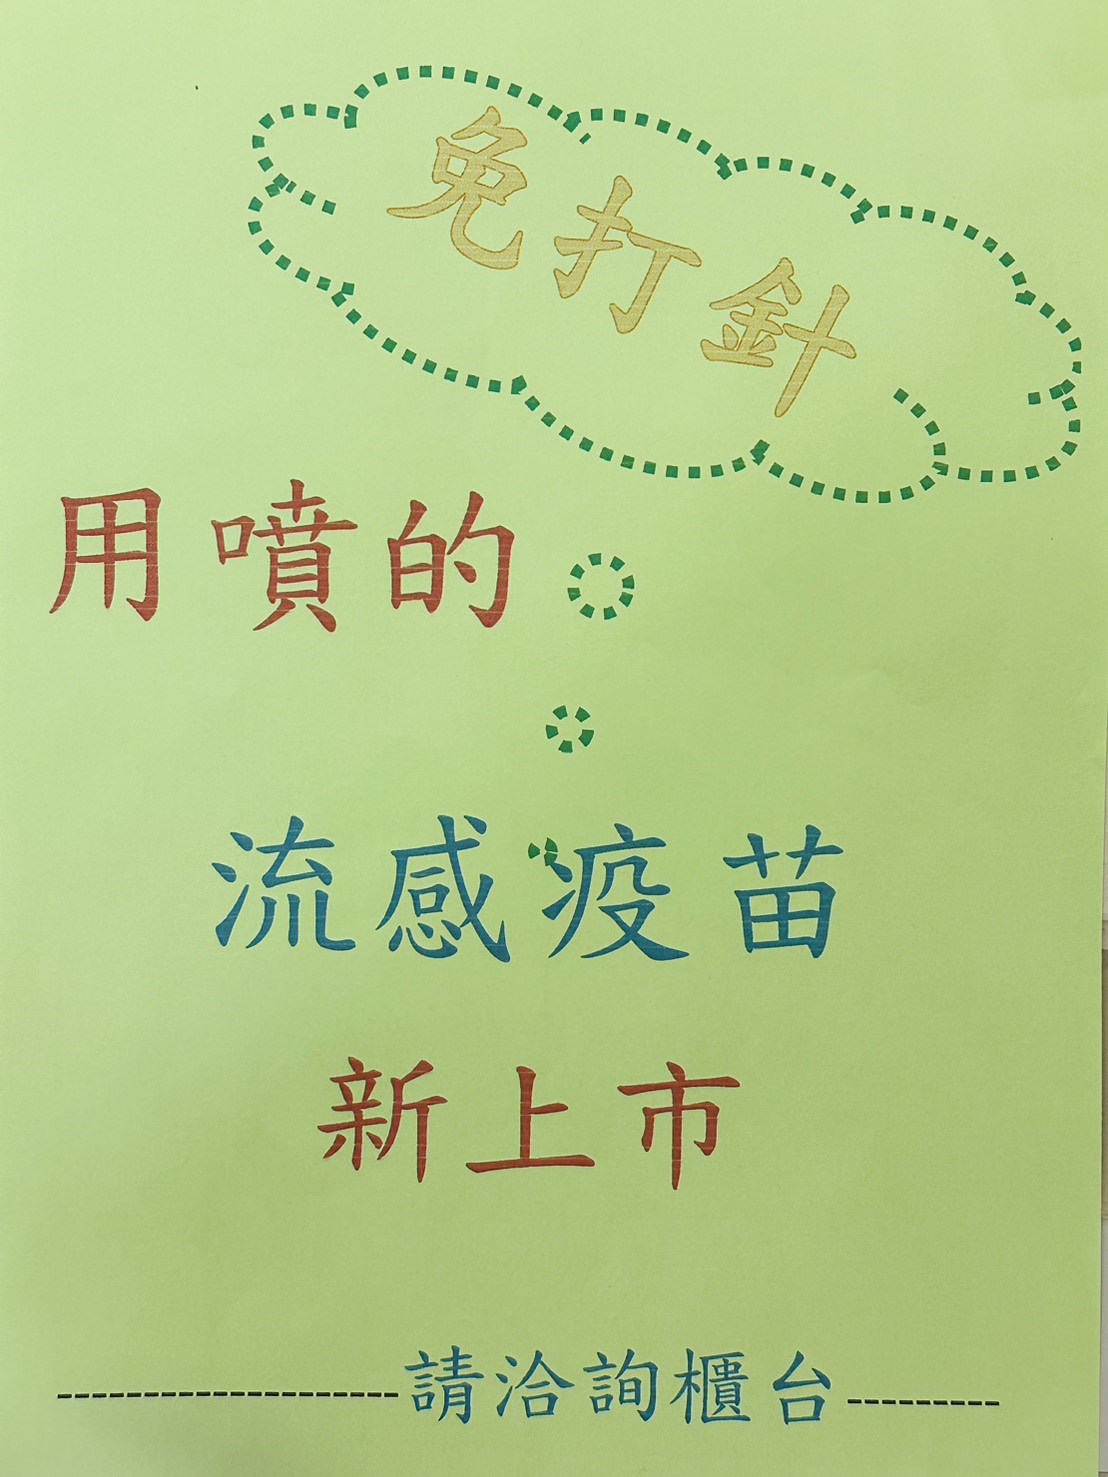 免打針
用噴的
流感疫苗
新上市
--------------------請洽詢櫃台---------